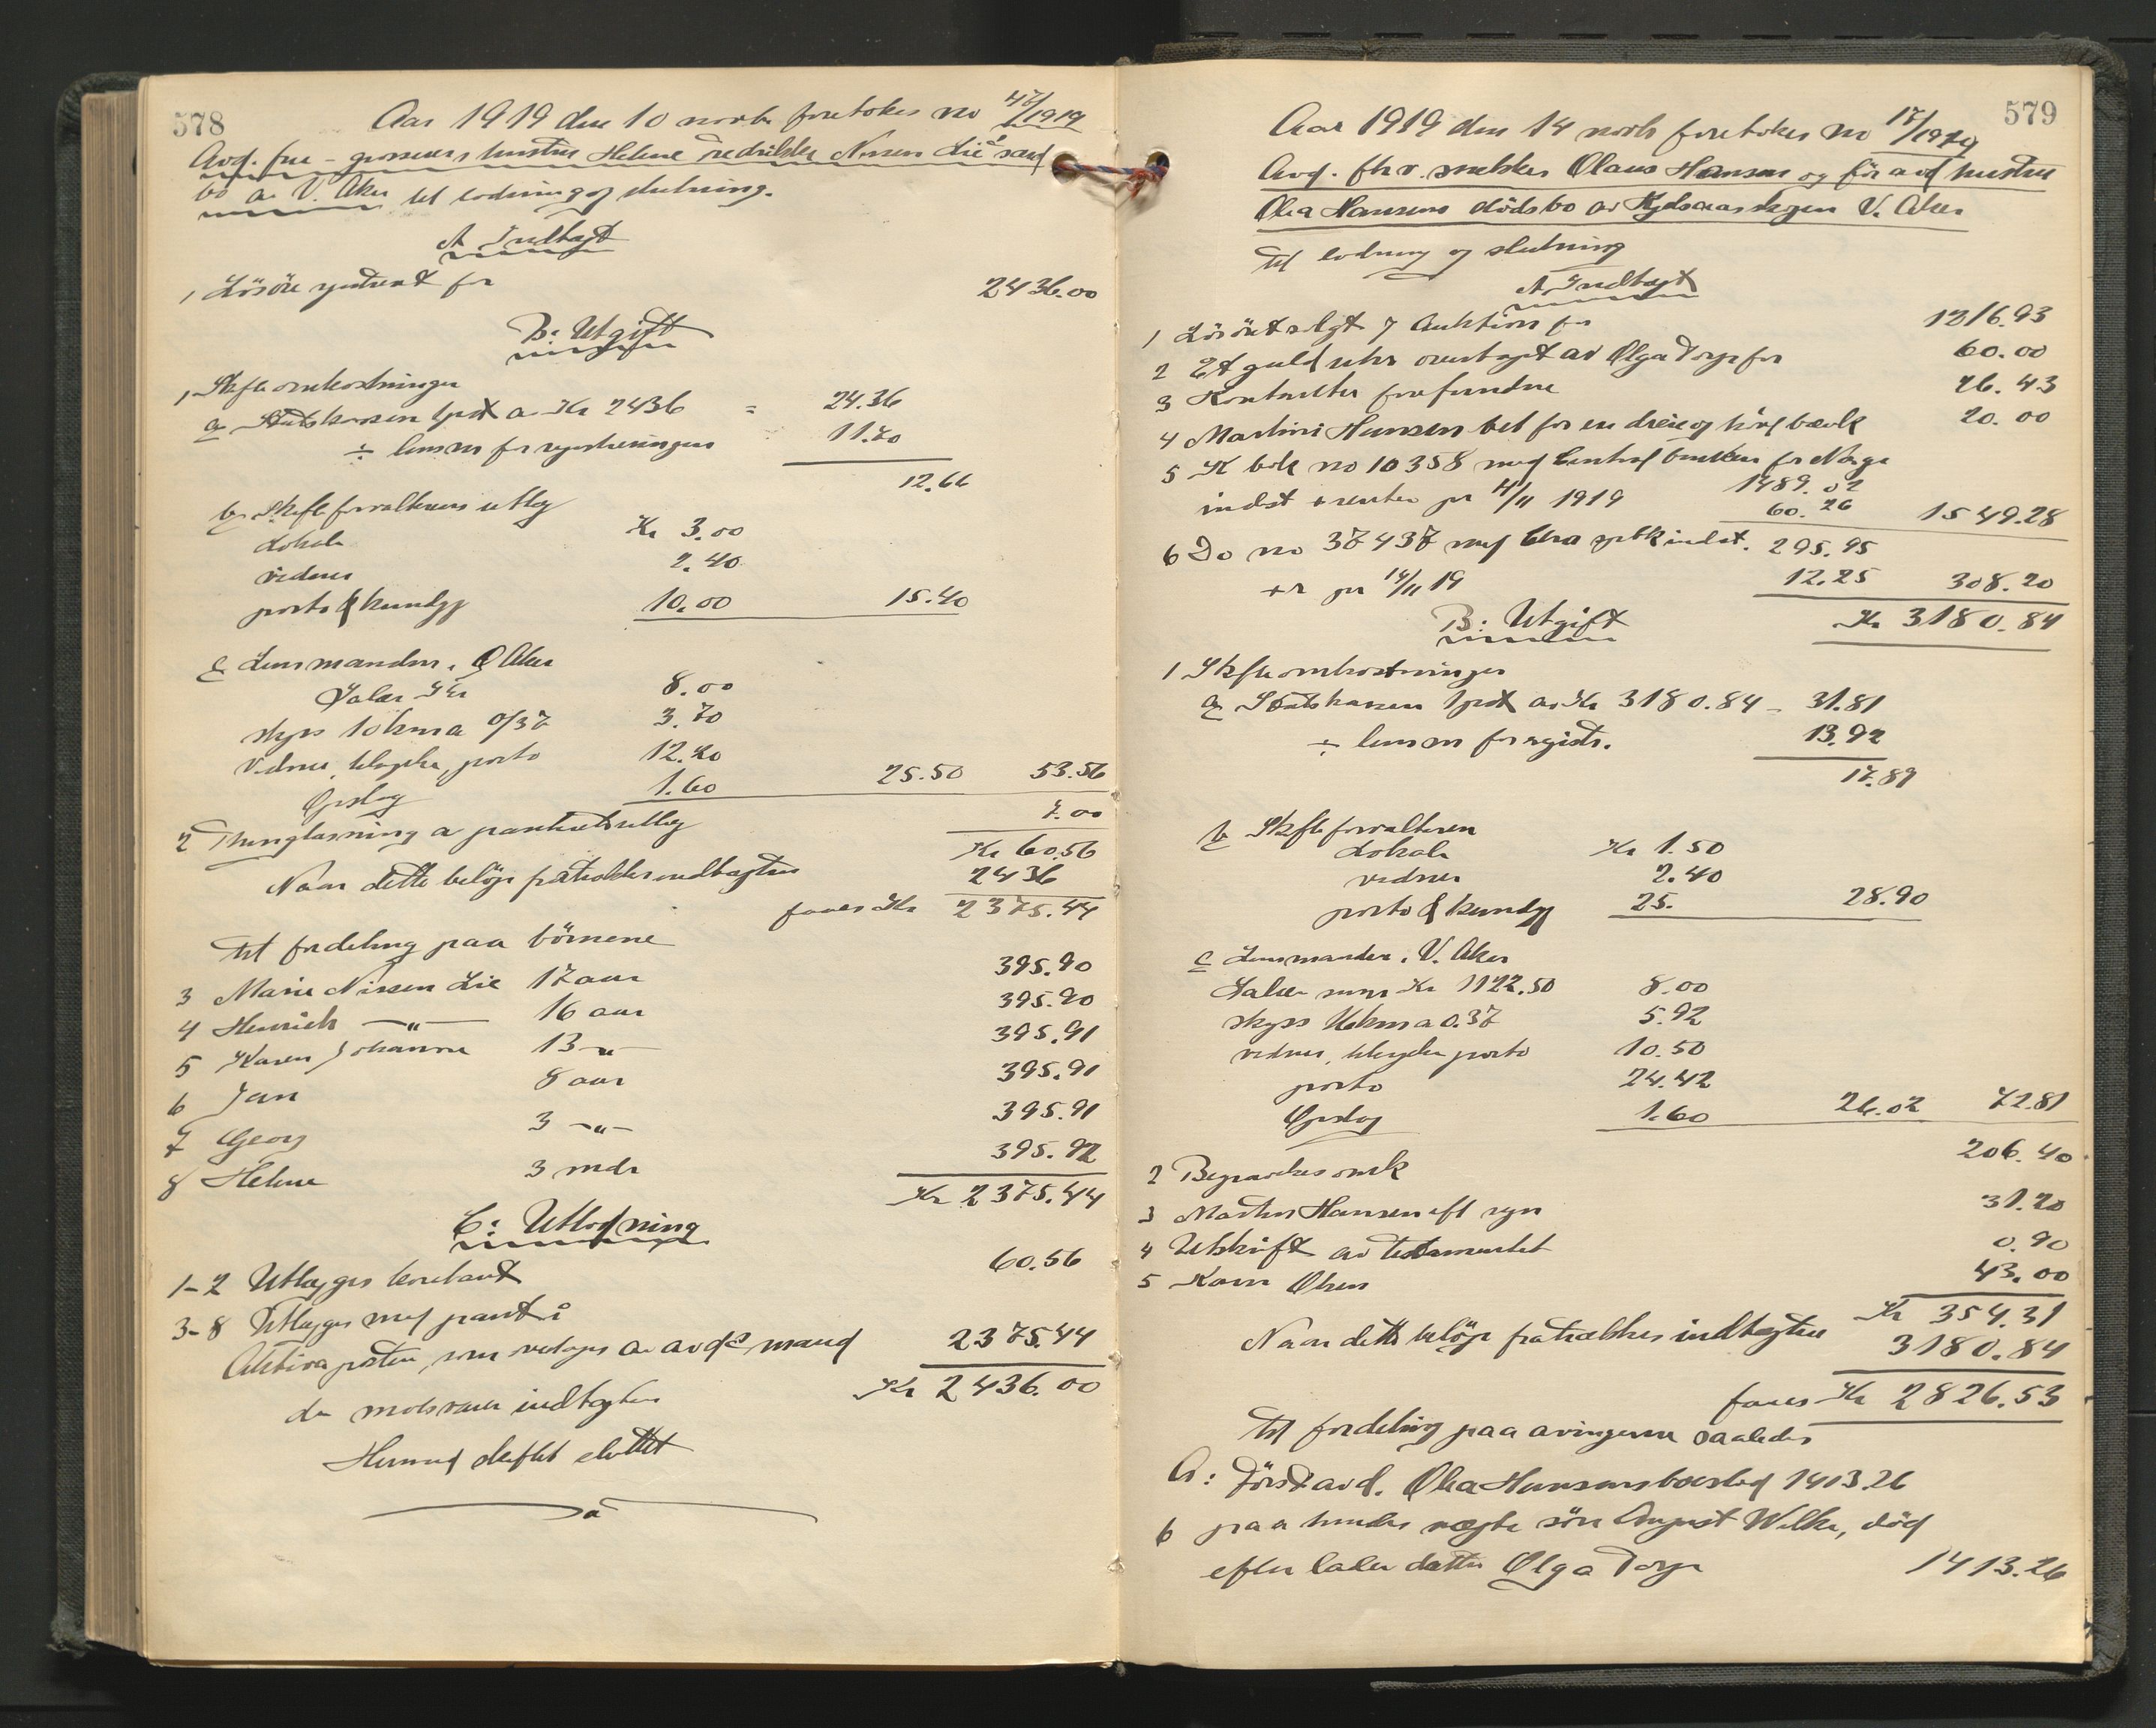 578
Aar 1919 den 10 novbr foretokes no 47/1919
Avd. frue - grosserers hustru Helene Fredrikke Nissen Lie's særd
bo av V. Aker til lodning og slutning.
A Indtægt
1 Lösöre vurdert for 2436.00
B: Utgift
1 Skifteomkostninger
a Statskassen 1 pct a Kr 2436 = 24.36
÷ lensm for registreringen 11.70
12.66
b. Skifteforvalterens utlæg
Lokale Kr 3.00
vidner 2.40
porto & kundgj 10.00 15.40
c Lensmanden i Ø Aker
Salær 8.00
skyss 10 km a 0/37 3.70
vidner, telegrafen, porto 12.20
Opslag 1.60 25.50 53.56
2 Thinglæsning av panteutlæg 7.00
Kr 60.56
Naar dette belöp fratrækkes indtægten 2436
faaes Kr 2375.44
til fordeling paa börnene
3 Marie Nissen Lie 17 aar 395.90
4 Henrich —"— 16 aar 395.90
5 Karen Johanne 13 —"— 395.91
6 Jan 8 aar 395.91
7 Georg 3 —"— 395.91
8 Helene 3 mdr 395.92
Kr 2375.44
C: Utlodning
1-2 Utlægges kontant 60.56
3-8 Utlægges med pant i
Aktiva posten, som overtages av avdes mand 2375.44
der motsvarer indtægten Kr 2436.00
Hermed skiftet sluttet
579
Aar 1919 den 14 novbr foretokes no 17/1919
Avd. fhv. snekker Olaus Hansen og för avd hustru
Olea Hansens dödsbo av Kjelsaasskogen V. Aker
til lodning og slutning
A Indtægt
1 Lösöret solgt v Auktion for 1216.93
2 Et gulduhr overtaget av Olga Torp for 60.00
3 Kontanter forefundne 26.43
4 Martin Hansen bet for en dreie og hövlbænk 20.00
5 K bok no 10358 med Centralbanken for Norge 1489.02
indst + renter pr 14/11 1919 60.26 1549.28
6 Do no 37437 med Chra spbk indst. 295.95
+ r pr 14/11 19 12.25 308.20
Kr 3180.84
B: Utgift
1 Skifteomkostninger
a Statskassen 1 pct av Kr 3180.84 - 31.81
÷ lensm for registr. 13.92
17.89
b Skifteforvalteren
Lokale Kr 1.50
vidner 2.40
porto & kundgj 25. 28.90
c Lensmanden i V. Aker
Salær sum Kr 1122.50 8.00
skyss 16 km a 0.37 5.92
vidner, telegrafen porto 10.50
porto 24.42
Opslag 1.60 26.02 72.81
2 Begravelsesomk 206.40
3 Martin Hansen eft regn 31.20
4 Utskrift av testamentet 0.90
5 Karen Olsen 43.00
Kr 354.31
Naar dette belöp fratrækkes indtægten 3180.84
faaes Kr 2826.53
til fordeling paa arvingerne saaledes
A: Först avd. Olea Hansens boeslod 1413.26
6 paa hendes uegte sön August Wilke, död
efterlater datter Olga Torp 1413.26